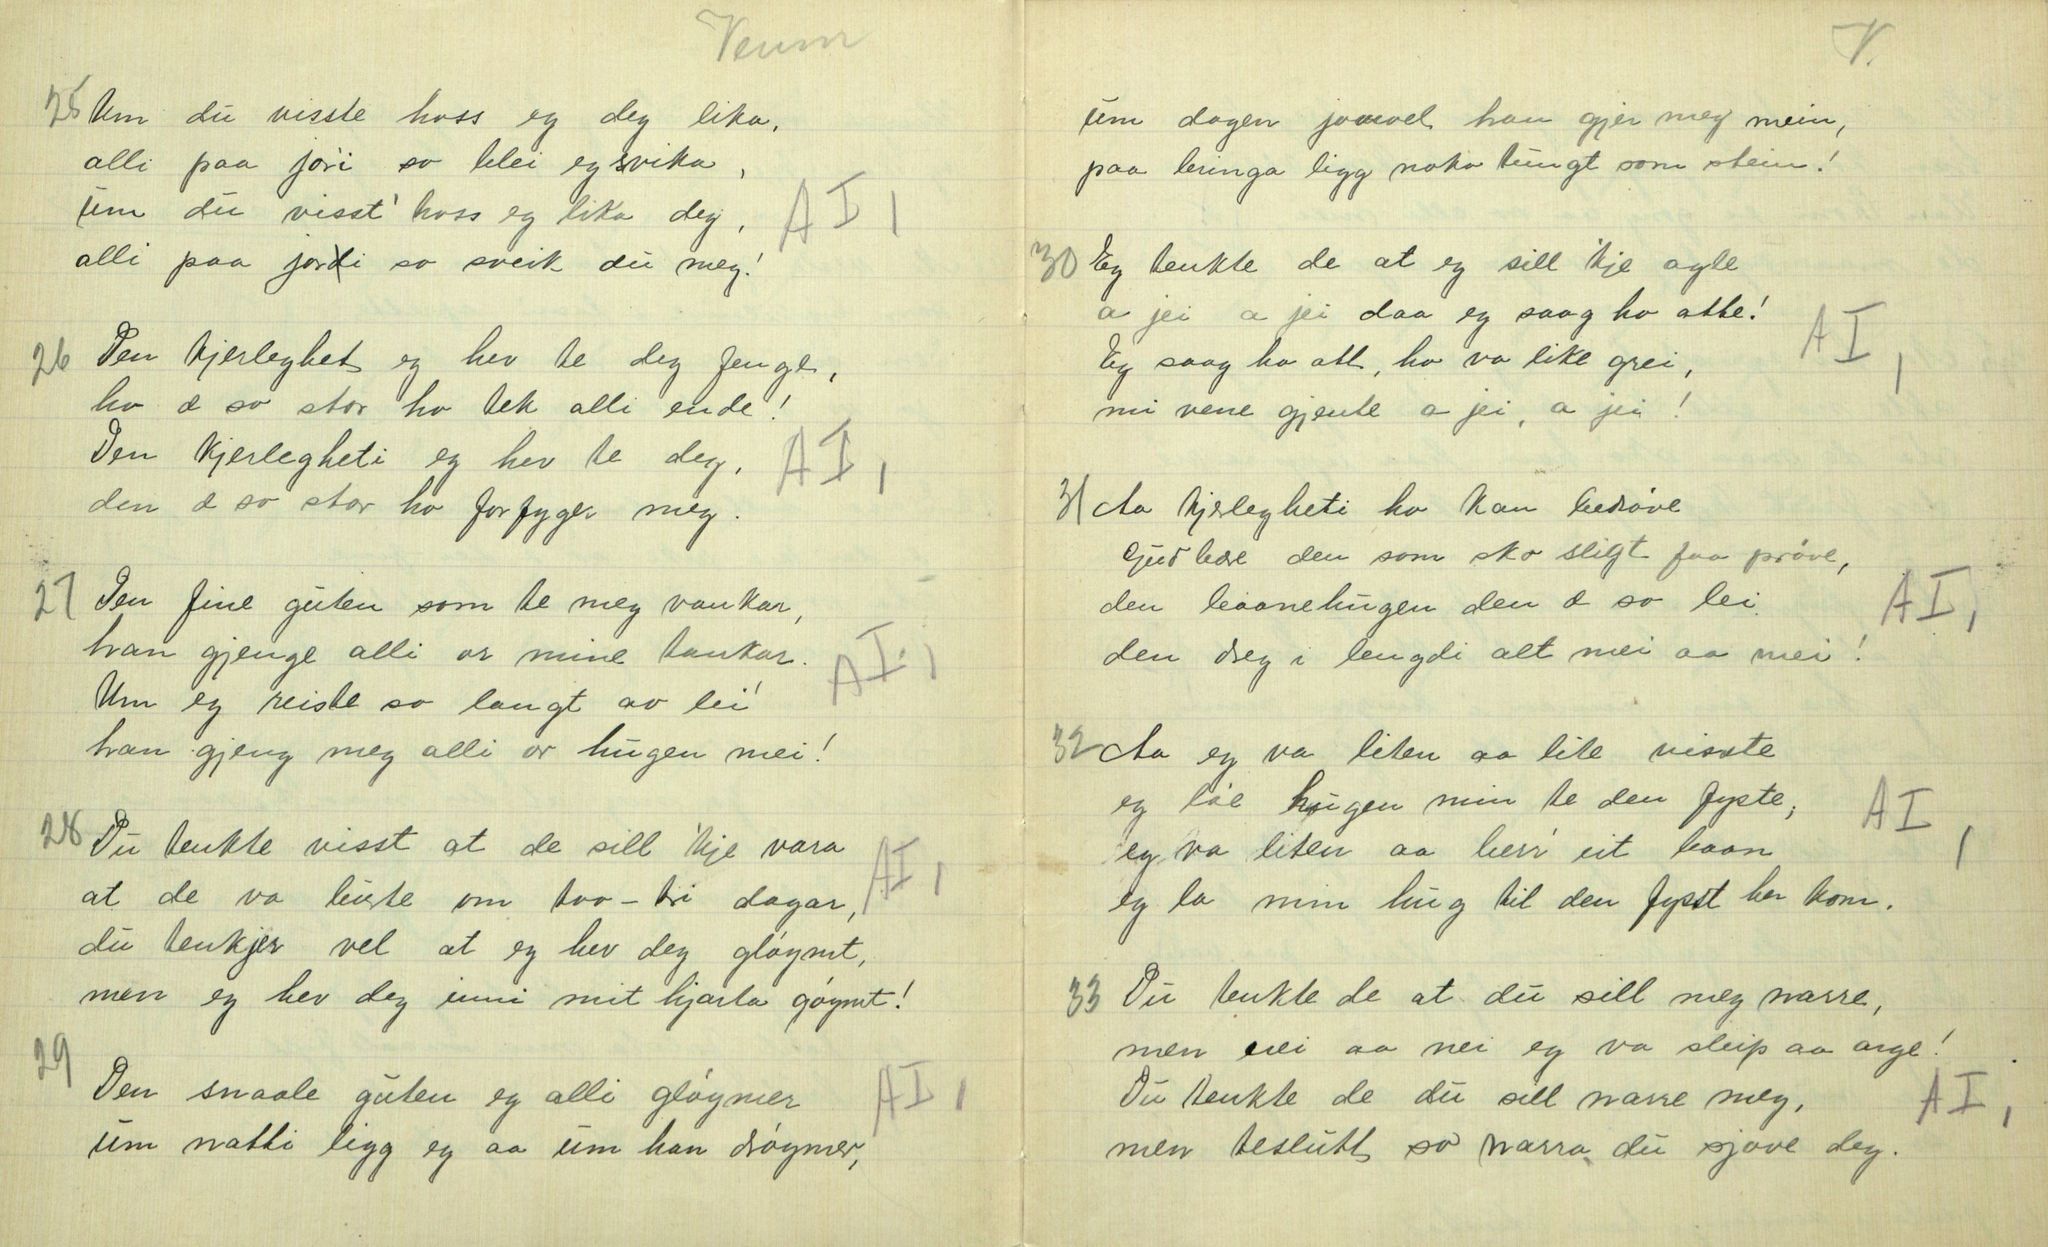 Veum
25 Um du visste hoss eg deg lika,
alli paa jori so blei eg svika,
um du visst' hoss eg lika deg,
alli paa jordi so sveik du meg!
AI,
26 Den kjerleghet eg hev te deg fenge,
ho æ so stor ho tek alli ende!
Den kjerlegheti eg hev te deg,
den æ so stor ho forfyger meg.
AI,
27 Den fine guten som te meg vankar,
han gjenge alli or mine tankar.
Um eg reiste so langt av lei'
han gjeng meg alli or hugen mei!
AI,
28 Du tenkte visst at de sill 'kje vara
at de va bürte om tvo-tri dagar,
du tenkjer vel at eg hev deg gløymt,
men eg hev deg inni mit hjarta gøymt!
AI,
29 Den snaale guten eg alli gløymer
um natti ligg eg aa um han drøymer,
AI,
V.
um dagen jamvel han gjer meg mein,
paa bringa ligg noko tungt som stein!
30 Eg tenkte de at eg sill 'kje agte
a jei a jei daa eg saag ho atte!
Eg saag ho att, ho va like grei,
mi vene gjente a jei, a jei!
AI,
31 Aa kjerlegheti ho kan bedrøve
Gud bære den som sko sligt faa prøve,
den baanehugen den æ so lei
den dreg i lengdi alt mei aa mei!
AI,
32 Aa eg va liten aa lite visste
eg lae hugen min te den fyste,
eg va liten aa berr' eit baan
eg la min hug til den fysst her kom.
AI,
33 Du tenkte de at du sill meg narre,
men nei aa nei eg va sleip aa arge!
Du tenkte de du sill narre meg,
men teslutt so narra du sjøve deg.
AI,